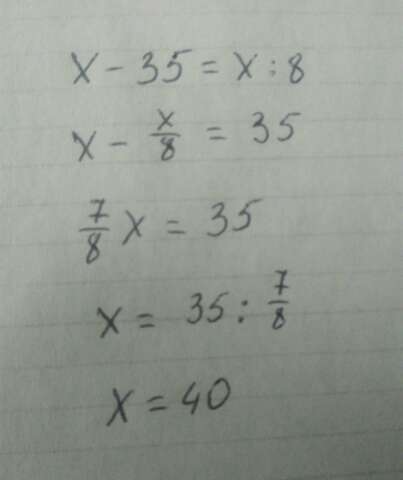 x - 35 = x : 8
x - x/8 = 35
7/8 x = 35
x = 35 : 7/8
x = 40